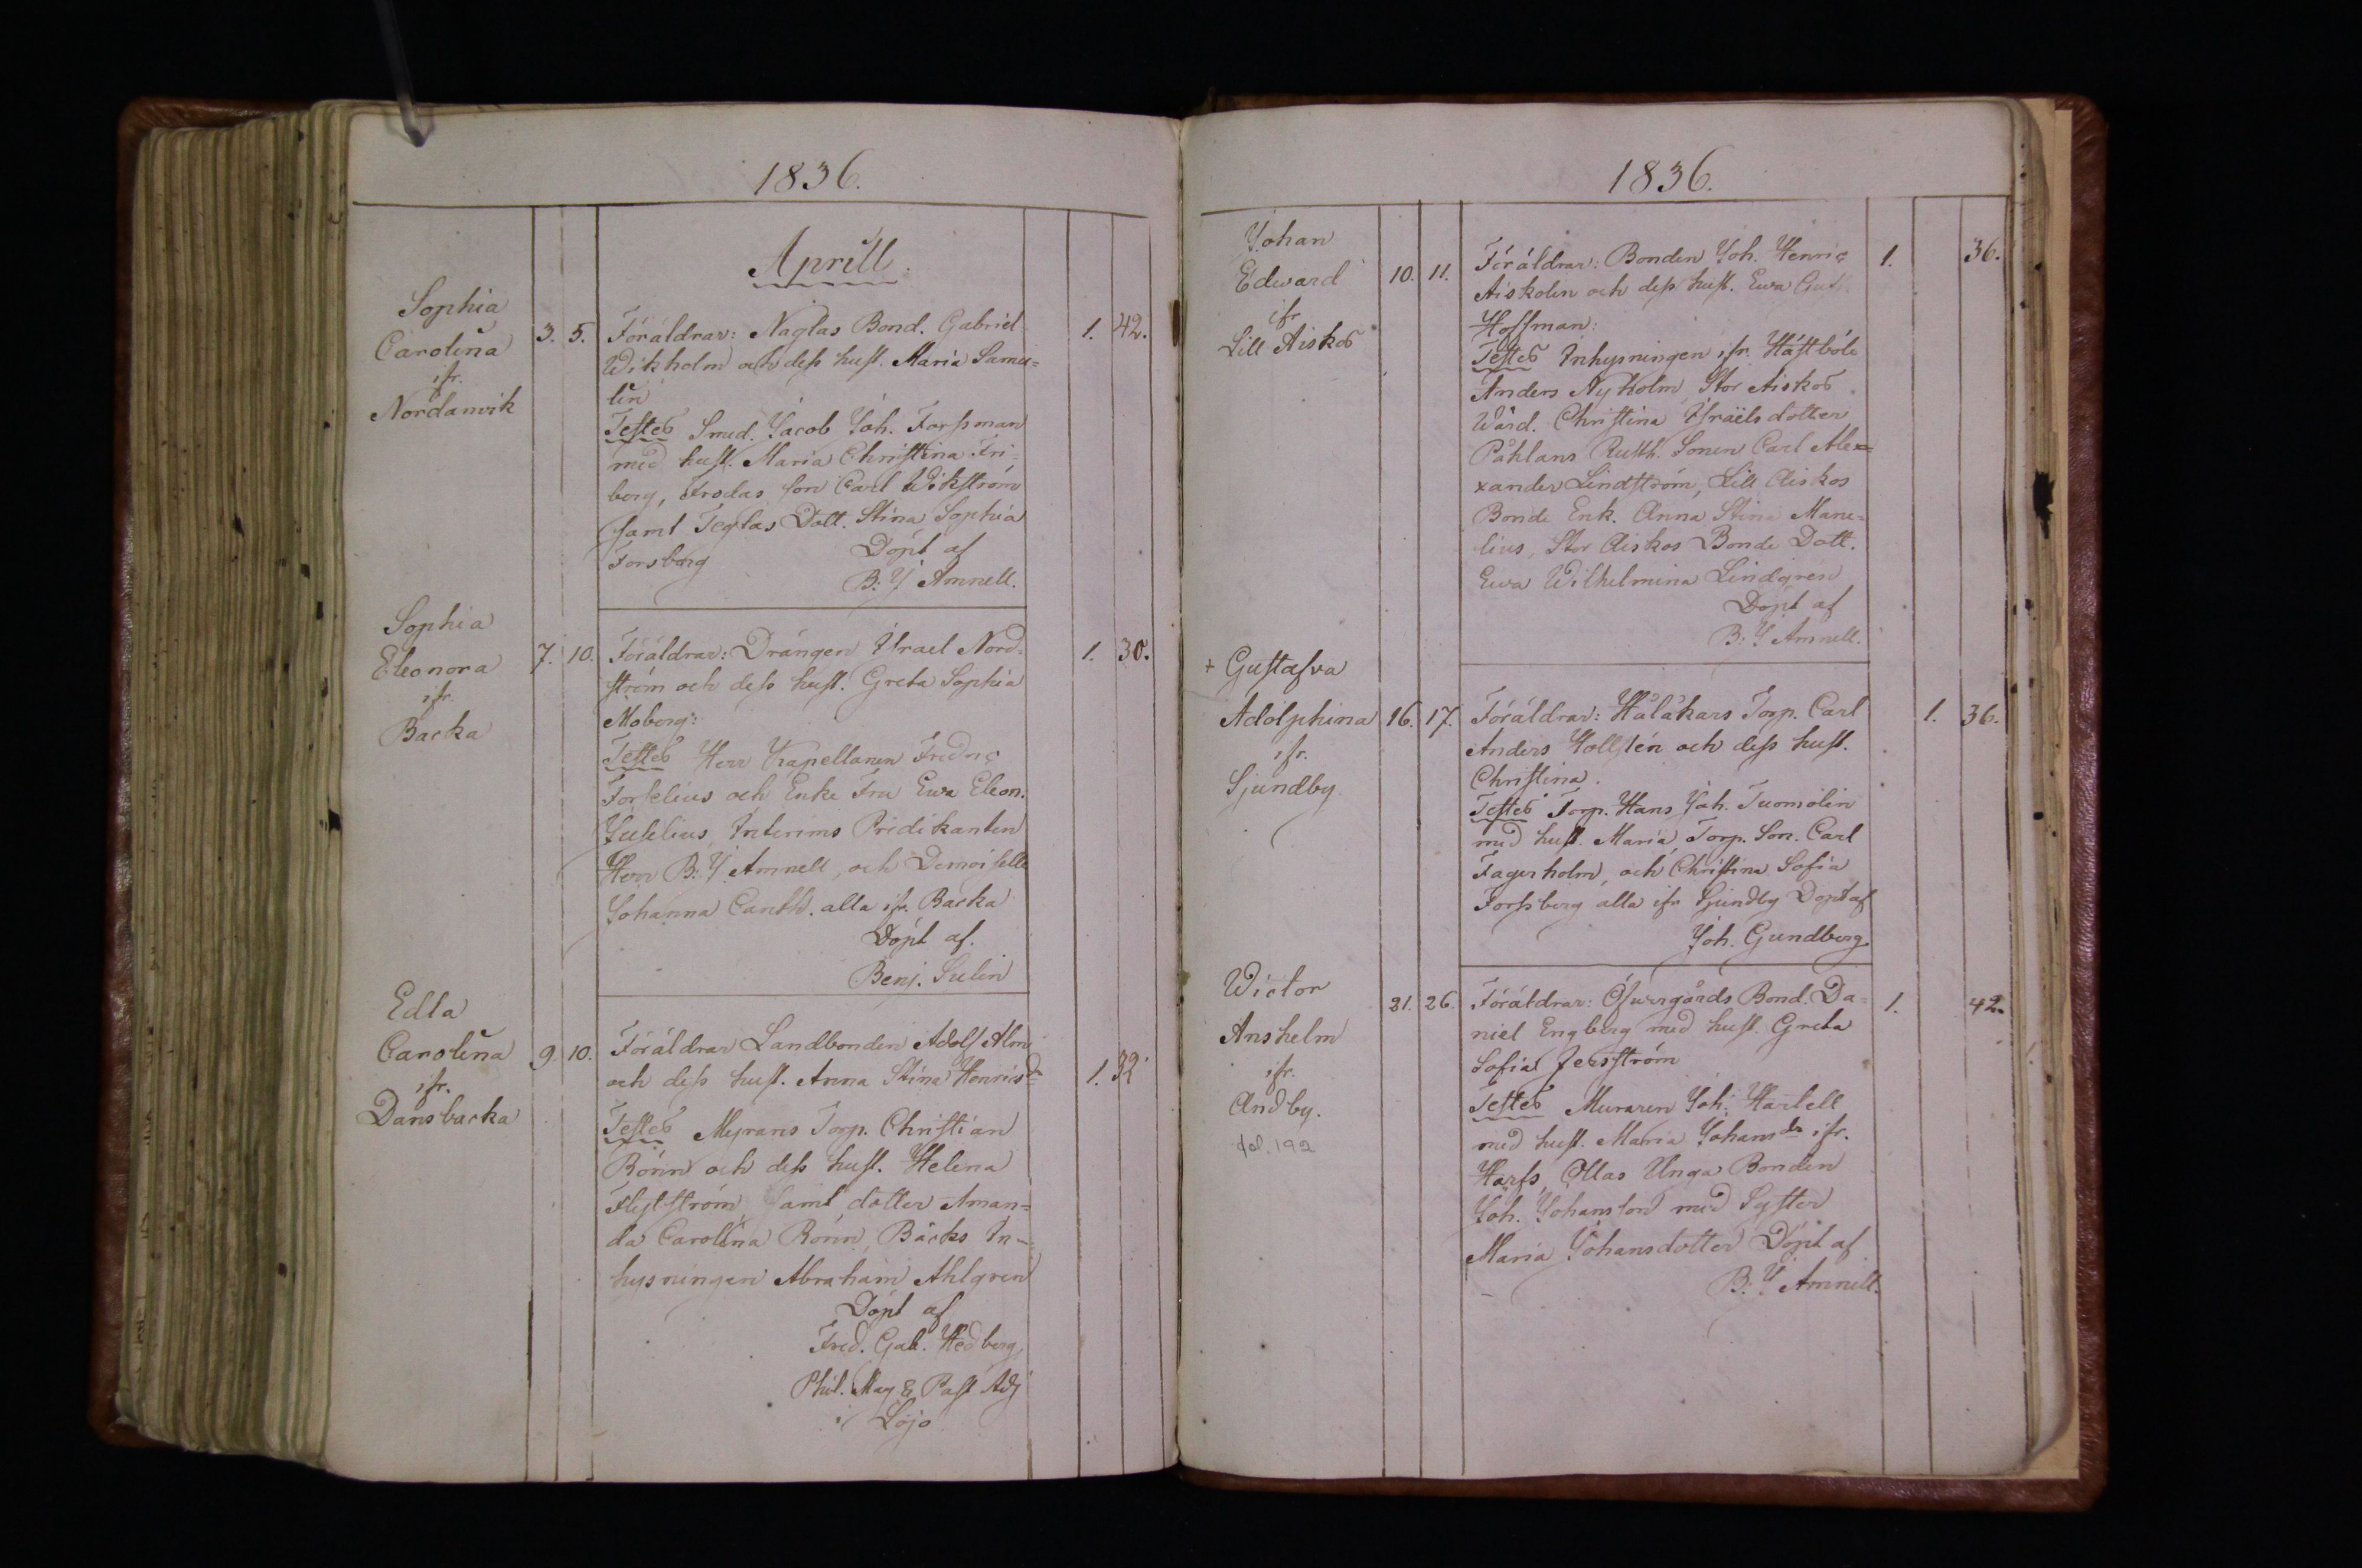 1836.
Aprill.
Sophia
Carolina
ifr.
Nordanvik
3. 5.
Föräldrar: Naglas Bond. Gabriel
Wikholm och dess hust. Maria Samu=
lin
Testes Smed. Jacob Joh. Forssman
med hust. Maria Christina Fri=
berg, Frodas son Carl Wikström
samt Teglas Dott. Stina Sophia
Forsberg
Döpt af
B: J Amnell.
1. 42.
Sophia
Eleonora
ifr.
Backa
7. 10.
Föräldrar: Drängen Israel Nord=
ström och dess hust. Greta Sophia
Moberg:
Testes Herr Kapellanen Fredric
Forselius och Enke Fru Ewa Eleon.
Juselius, Interims Predikanten
Herr B: J Amnell, och Demoiselle
Johanna Canth. alla ifr. Backa
Döpt af.
Benj. Sulin
1. 30.
Edla
Carolina
ifr.
Dansbacka
9. 10.
Föräldrar Landbonden Adolf Alm
och dess hust. Anna Stina Henricsdr
Testes Myrans Torp. Christian
Rönn och dess hust. Helena
Flytström, samt dotter Aman=
da Carolina Rönn, Bäcks In=
hysningen Abraham Ahlgren
Döpt af
Fred. Gab. Hedberg
Phil. Mag & Past Adj
i Lojo
1. 32
1836.
Johan
Edward
ifr
Lill Aiskos
10. 11.
Föräldrar: Bonden Joh. Henric
Aiskolin och dess hust. Ewa Cath
Hoffman:
Testes Inhysningen ifr. Hästböle
Anders Nyholm, Stor Aiskos
Wärd. Christina Israëlsdotter
Påhlans Rusth. Sonen Carl Alex=
xander Lindström, Lill Aiskos
Bonde Enk. Anna Stina Mane=
lius, Stor Aiskos Bonde Dott.
Ewa Wilhelmina Lindgren
Döpt af
B: J Amnell.
1. 36.
+ Gustafva
Adolphina
ifr.
Sjundby.
16. 17.
Föräldrar: Hålåkars Torp. Carl
Anders Hollstén och dess hust.
Christina.
Testes Torp. Hans Joh. Tuomolin
med hust. Maria, Torp. Son. Carl
Fagerholm, och Christina Sofia
Forssberg alla ifr Sjundby Döpt af
Joh. Gundberg.
1. 36.
Wictor
Anshelm
ifr.
Andby.
fol. 192
21. 26.
Föräldrar: Öfvergårds Bond. Da=
niel Engberg med hust. Greta
Sofia
Testes Muraren Joh. Hartell
med hust. Maria Johansdr ifr.
Harfs, Ollas Unga Bonden
Joh. Johansson med Syster
Maria Johansdotter Döpt af
B: J Amnell.
1. 42.